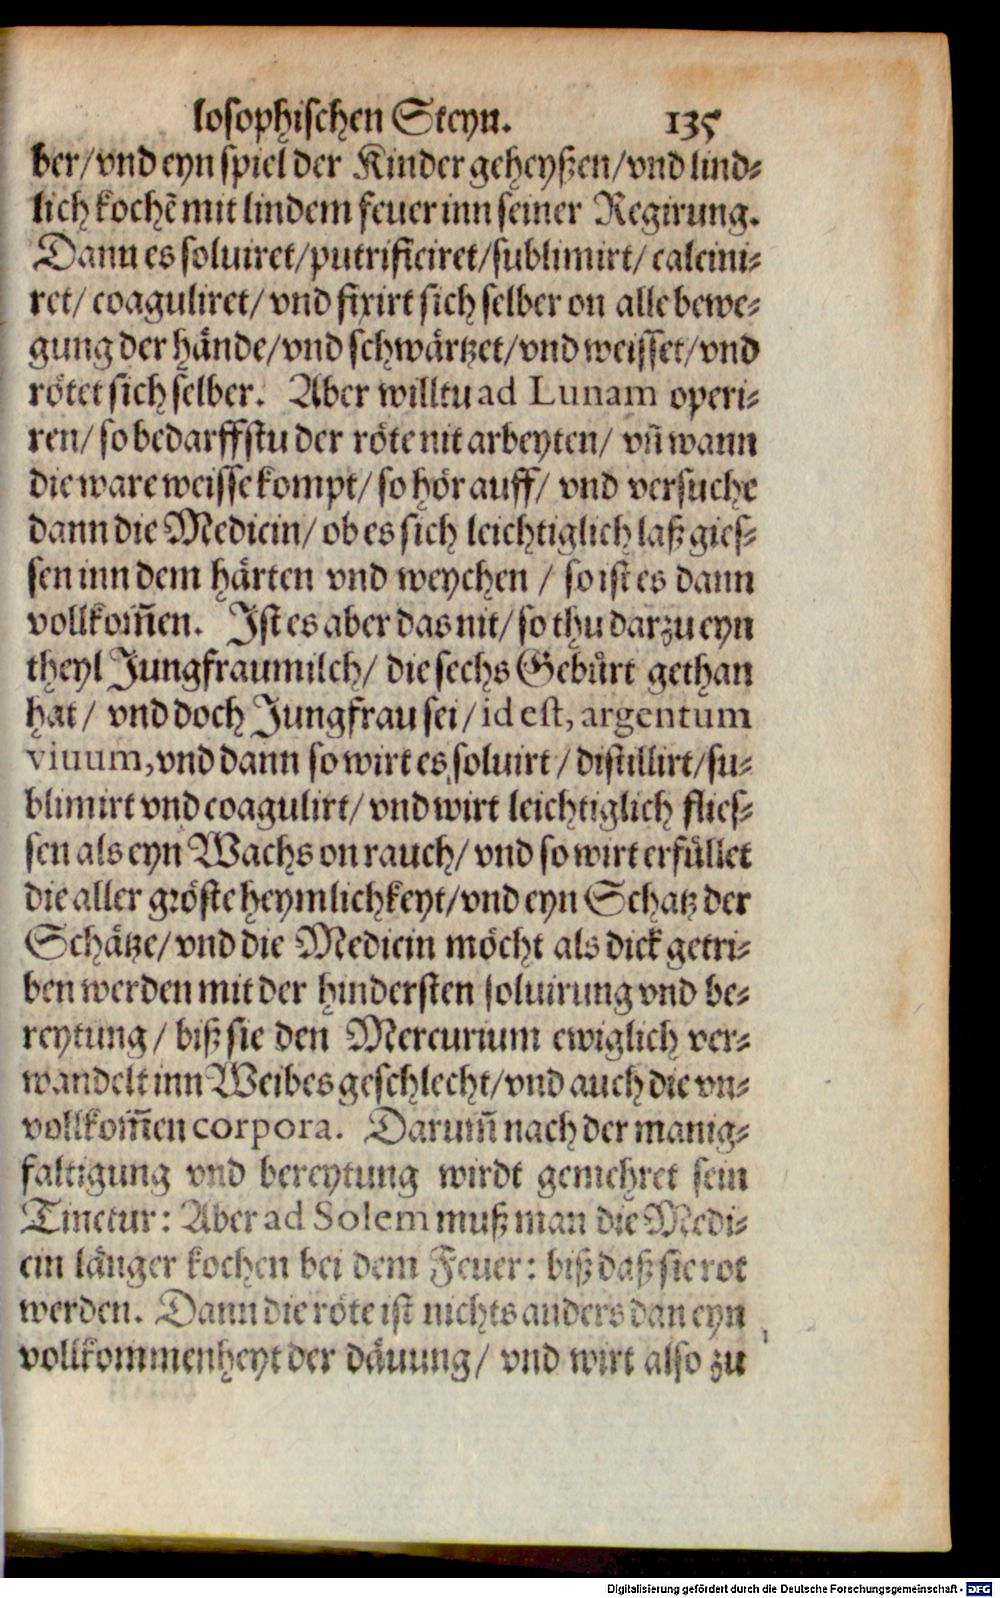 losophischen Steyn. 135
ber/vnd eyn spiel der Kinder geheyßen/vnd lind⸗
lich kochẽ mit lindem feuer inn seiner Regirung.
Dann es soluiret/putrificiret/sublimirt/ calcini⸗
ret/ coaguliret/ vnd fixirt sich selber on alle bewe⸗
gung der hände/vnd schwärtzet/vnd weisset/vnd
rötet sich selber. Aber willtu ad Lunam operi⸗
ren/ so bedarffstu der röte nit arbeyten/ vñ wann
die ware weisse kompt/ so hör auff/ vnd versuche
dann die Medicin/ ob es sich leichtiglich laß gies⸗
sen inn dem härten vnd weychen / so ist es dann
vollkom̃en. Ist es aber das nit/ so thu darzu eyn
theyl Jungfraumilch/ die sechs Gebürt gethan
hat/ vnd doch Jungfrau sei/ id est, argentum
viuum, vnd dann so wirt es soluirt/ distillirt/su⸗
blimirt vnd coagulirt/ vnd wirt leichtiglich flies⸗
sen als eyn Wachs on rauch/ vnd so wirt erfüllet
die aller gröste heymlichkeyt/vnd eyn Schatz der
Schätze/ vnd die Medicin möcht als dick getri⸗
ben werden mit der hindersten soluirung vnd be⸗
reytung / biß sie den Mercurium ewiglich ver⸗
wandelt inn Weibes geschlecht/vnd auch die vn⸗
vollkom̃en corpora. Darum̃ nach der manig⸗
faltigung vnd bereytung wirdt gemehret sein
Tinctur: Aber ad Solem muß man die Medi⸗
cin länger kochen bei dem Feuer: biß daß sie rot
werden. Dann die röte ist nichts anders dan eyn
vollkommenheyt der däuung/ vnd wirt also zu
Digitalisierung gefördert durch die Deutsche Forschungsgemeinschaft - DFG